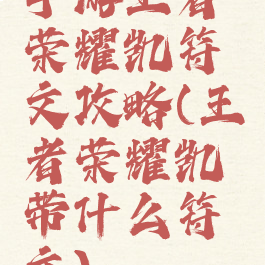 手游王者
荣耀凯符
文攻略(王
者荣耀凯
带什么符
文)